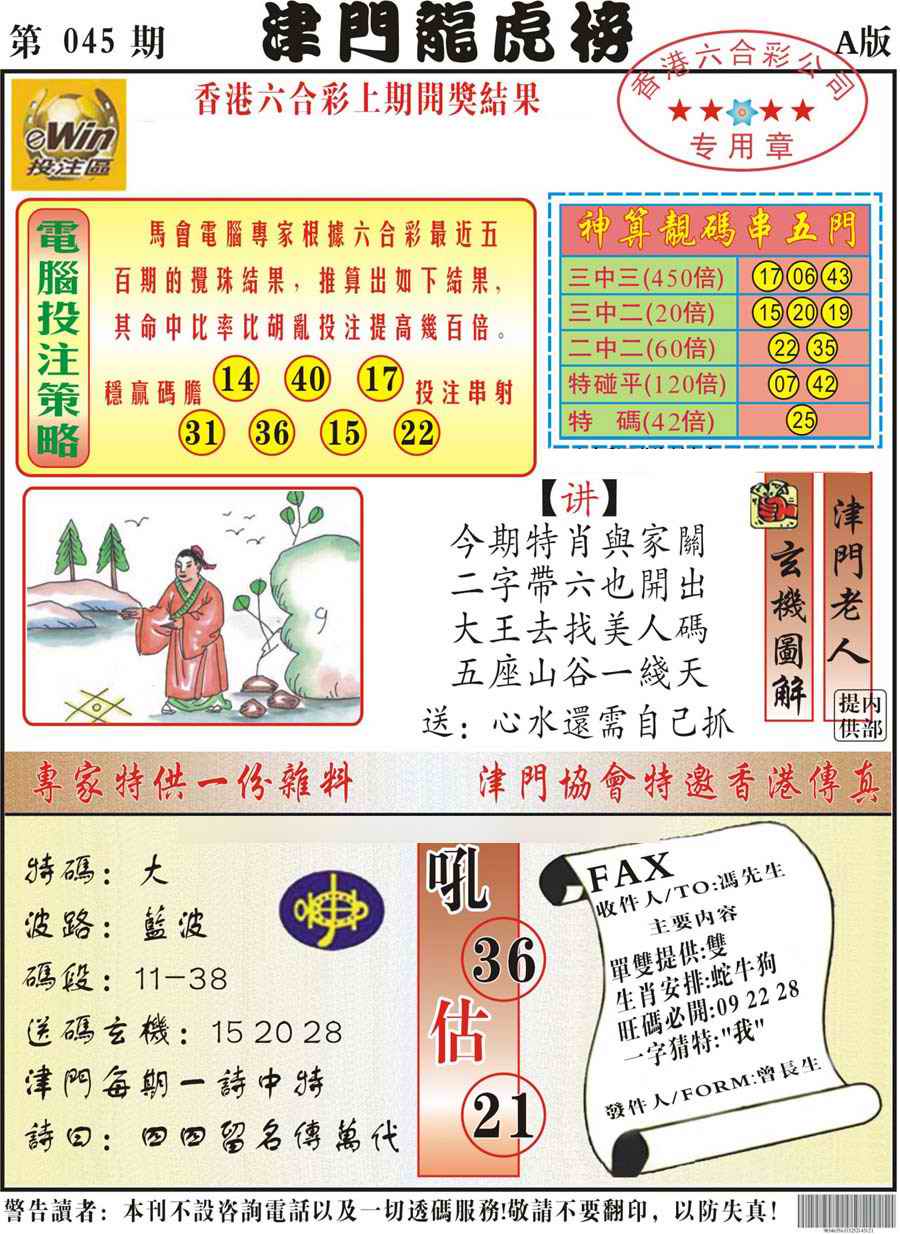 第 045 期
津門龍虎榜
A版
eWin
投注區
香港六合彩上期開獎結果
香港六合彩公司
专用章
電腦投注策略
馬會電腦專家根據六合彩最近五
百期的攪珠結果，推算出如下結果，
其命中比率比胡亂投注提高幾百倍。
穩贏碼膽 14 40 17 投注串射
31 36 15 22
神算靚碼串五門
三中三(450倍) 17 06 43
三中二(20倍) 15 20 19
二中二(60倍) 22 35
特碰平(120倍) 07 42
特 碼(42倍) 25
【讲】
今期特肖與家關
二字帶六也開出
大王去找美人碼
五座山谷一綫天
送：心水還需自己抓
玄機圖解
津門老人
内部提供
專家特供一份雜料
津門協會特邀香港傳真
特碼：大
波路：藍波
碼段：11-38
送碼玄機：15 20 28
津門每期一詩中特
詩曰：四四留名傳萬代
吼
36
估
21
FAX
收件人/TO:馮先生
主要内容
單雙提供:雙
生肖安排:蛇牛狗
旺碼必開:09 22 28
一字猜特:"我"
發件人/FORM:曾長生
警告讀者：本刊不設咨詢電話以及一切透碼服務!敬請不要翻印，以防失真!